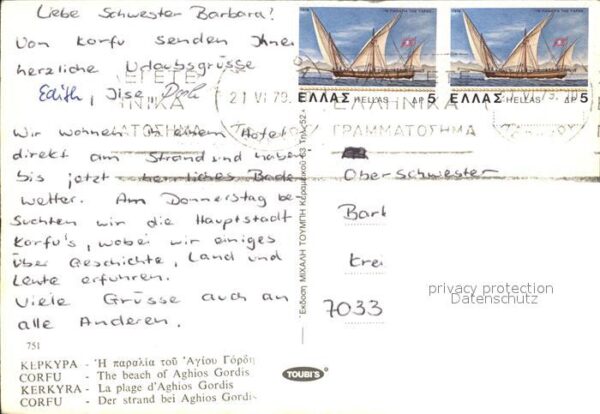 Liebe Schwester Barbara!
Von Korfu senden Ihnen
herzliche Urlaubsgrüsse
Edith, Ilse,
Wir wohnen in einem Hotel
direkt am Strand und haben
bis jetzt herrliches Bade
wetter. Am Donnerstag be
suchten wir die Hauptstadt
Korfu's, wobei wir einiges
über Geschichte, Land und
Leute erfuhren.
Viele Grüsse auch an
alle Anderen.
751
ΚΕΡΚΥΡΑ - Ἡ παραλία τοῦ Ἁγίου Γόρδη
CORFU - The beach of Aghios Gordis
KERKYRA - La plage d'Aghios Gordis
CORFU - Der strand bei Aghios Gordis
Ἔκδοση ΜΙΧΑΛΗ ΤΟΥΜΠΗ Κεραμεικοῦ 63 Τηλ.
TOUBI'S
ΕΛΛΑΣ HELLAS ΔΡ 5
ΕΛΛΑΣ HELLAS ΔΡ 5
21 VI 79
ΕΛΛΗΝΙΚΑ
ΓΡΑΜΜΑΤΟΣΗΜΑ
Oberschwester
Barb
Krei
7033
privacy protection
Datenschutz